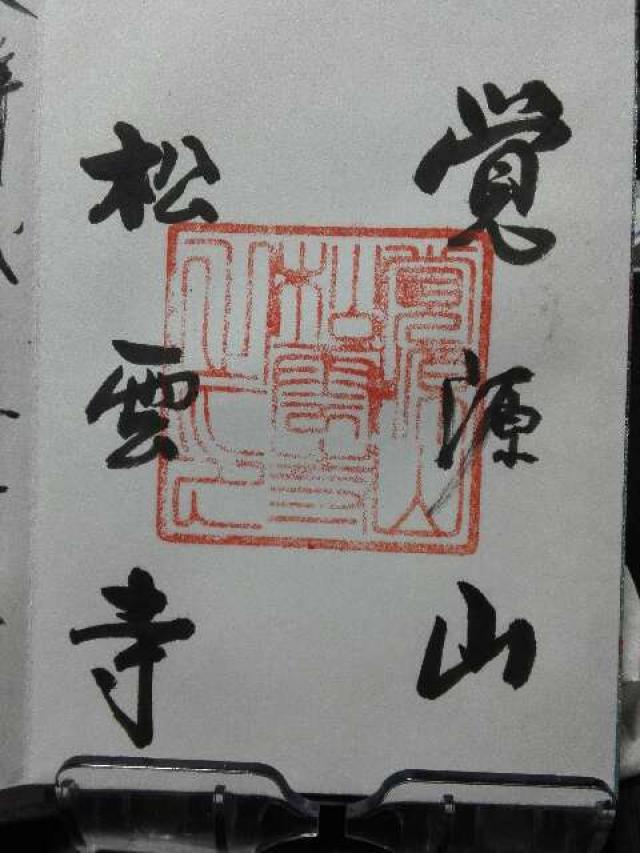 覚源山
松雲寺